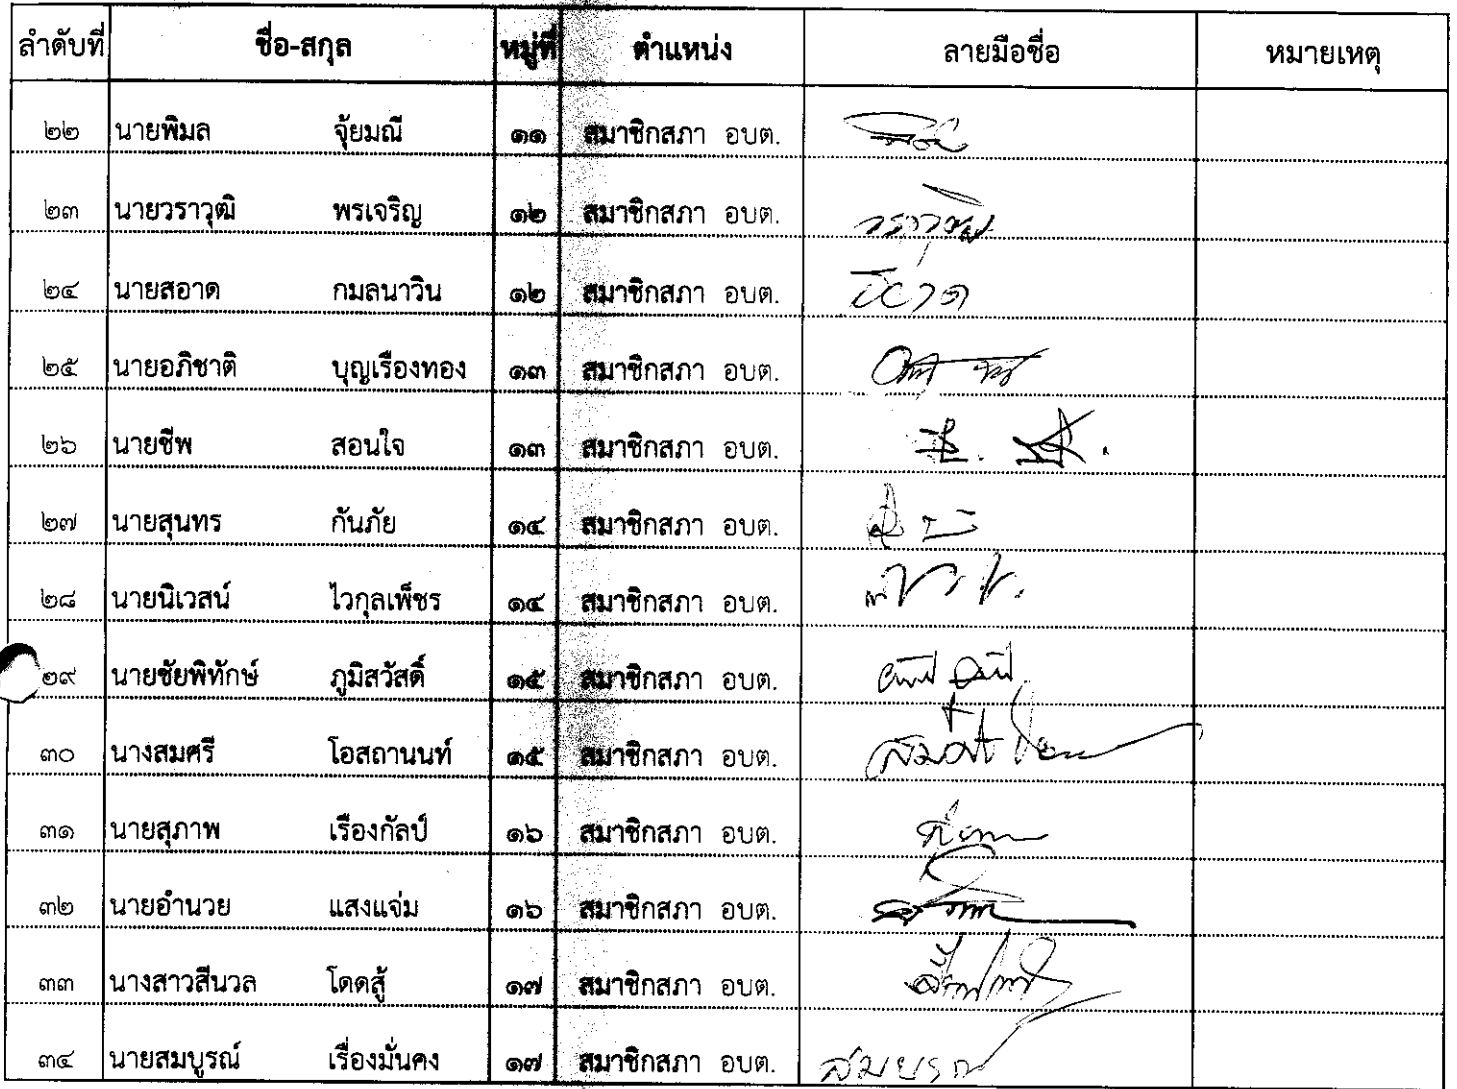 ลำดับที่ ชื่อ-สกุล หมู่ที่ ตำแหน่ง ลายมือชื่อ หมายเหตุ
๒๒ นายพิมล จุ้ยมณี ๑๑ สมาชิกสภา อบต.
๒๓ นายวราวุฒิ พรเจริญ ๑๒ สมาชิกสภา อบต. วราวุฒิ
๒๔ นายสอาด กมลนาวิน ๑๒ สมาชิกสภา อบต.
๒๕ นายอภิชาติ บุญเรืองทอง ๑๓ สมาชิกสภา อบต.
๒๖ นายชีพ สอนใจ ๑๓ สมาชิกสภา อบต.
๒๗ นายสุนทร กันภัย ๑๔ สมาชิกสภา อบต.
๒๘ นายนิเวสน์ ไวกุลเพ็ชร ๑๔ สมาชิกสภา อบต.
๒๙ นายชัยพิทักษ์ ภูมิสวัสดิ์ ๑๕ สมาชิกสภา อบต.
๓๐ นางสมศรี โอสถานนท์ ๑๕ สมาชิกสภา อบต.
๓๑ นายสุภาพ เรืองกัลป์ ๑๖ สมาชิกสภา อบต.
๓๒ นายอำนวย แสงแจ่ม ๑๖ สมาชิกสภา อบต.
๓๓ นางสาวสีนวล โดดสู้ ๑๗ สมาชิกสภา อบต.
๓๔ นายสมบูรณ์ เรื่องมั่นคง ๑๗ สมาชิกสภา อบต.